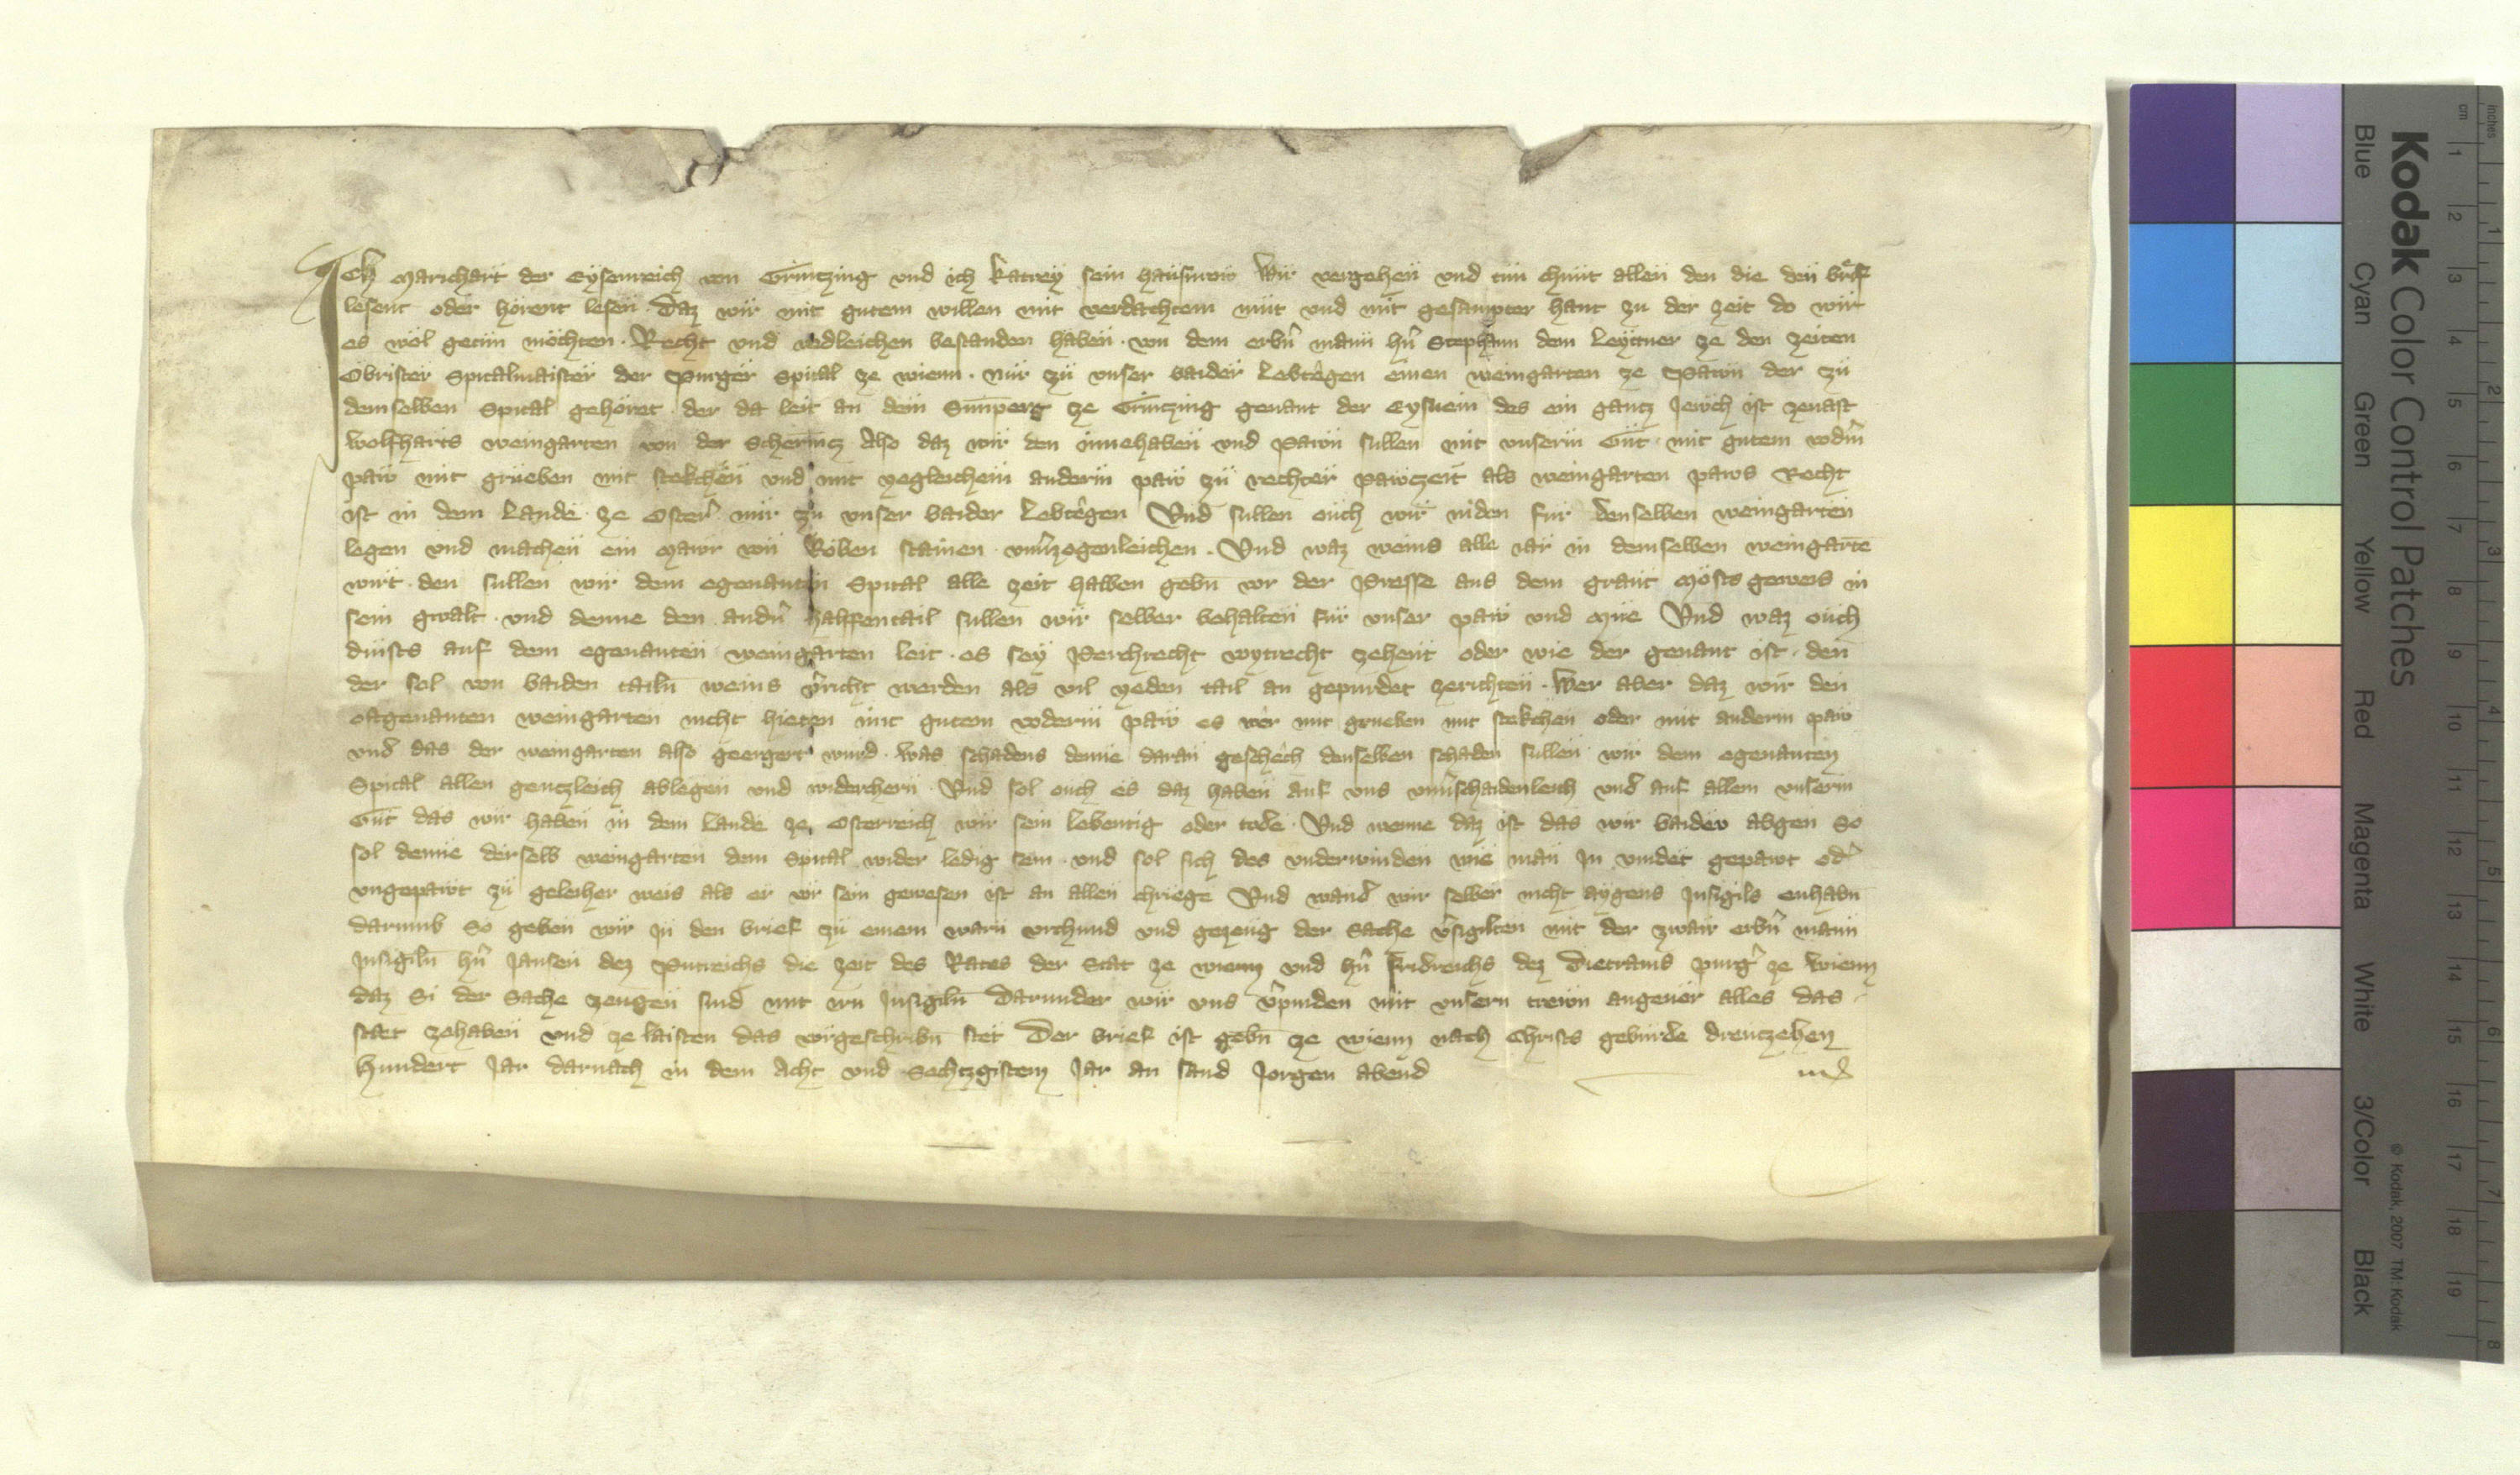 Ich Marichart der Eysenreich von Grintzing vnd ich Katrey sein hausurow Wir vergehen vnd tün chunt allen den die den brief
lesent oder hörent lesen. Daz wir mit gutem willen mit verdachtem müt vnd mit gesampter hant zu der zeit do wir
es wol getün möchten. Recht vnd redleichen bestanden haben. von dem erbn mann hn Stephann dem Leyttner ze den zeiten
Obrister Spitalmaister der Purger Spital ze wienn. nür zü vnser baider Lebtegen einen weingarten ze Pawn der zü
demselben Spital gehöret. der da leit an dem ze Grintzing genant der Eysnein des ein gantz Jewch ist zenast
Wolfharts weingarten von der Also daz wir den innehaben vnd Pawn sullen mit vnserm Güt. mit gutem vodm
paw mit grüeben mit stekchen vnd mit yegleichem anderm paw zü rechter pawzeit als weingarten paws Recht
ist in dem Lande ze Oster nür zu vnser baider Lebtegen Vnd sullen ouch wir niden für denselben weingarten
legen vnd machen ein Mawr von stainen vnuerzogenleichen. Vnd waz weins alle iar in demselben weingarte
wirt. den sullen wir dem egenanten Spital alle zeit halben gebn vor der Presse aus dem grant Mosts geweis in
sein gwalt. vnd denne den andn halffentail sullen wir selber behalten für vnser paw vnd Müe Vnd waz ouch
dinsts auf dem egenanten weingarten leit. es sey Perchrecht voytrecht zehent oder wie der genant ist. den
der sol von baiden tailn weins vricht werden als vil yeden tail an gepurdet zerichten. Wer aber daz wir den
oftgenanten weingarten nicht hieten mit gutem voderm paw es wer mit grueben mit stekchen oder mit anderm paw
vnd das der weingarten also geergert wurd. was schadens denne daran geschech denselben schaden sullen wir dem egenanten
Spital allen gentzleich ablegen vnd widerchern. Vnd sol ouch es daz haben auf vns vnuerschaidenleich vnd auf allem vnserm
Güt das wir haben in dem Lande ze Osterreich wir sein lebentig oder tode. Vnd wenne daz ist das wir baidev abgen So
sol denne derselb weingarten dem Spital wider ledig sein. vnd sol sich des vnderwinden wie man in vindet gepawt od
vngepawt zü geleicher weis als er vor sein gewesen ist an allen chriege Vnd wand wir selber nicht aygens Insigils enhabn
darumb So geben wir in den brief zü einem warn vrchund vnd gezeug der Sache vsigilten mit der zwair erbn mann
Insigiln hn Jansen dez Putreichs die zeit des Rates der Stat ze wienn vnd hn Fridreichs dez Dietrams purg ze wienn
daz Si der Sache zeugen sind mit irn Insigiln Darunder wir vns vpinden mit vnsern trewn angeuer alles das
stet zehaben vnd ze laisten das vorgeschribn stet Der brief ist gebn ze wienn nach Christs geburde dreutzehen
Hundert Jar darnach in dem Acht vnd Sechtzgistem Jar an sand Jorgen abend
Kodak Color Control Patches
Blue Cyan Green Yellow Red Magenta White 3/Color Black
inches 1 2 3 4 5 6 7 8
cm 1 2 3 4 5 6 7 8 9 10 11 12 13 14 15 16 17 18 19
© Kodak, 2007 TM: Kodak